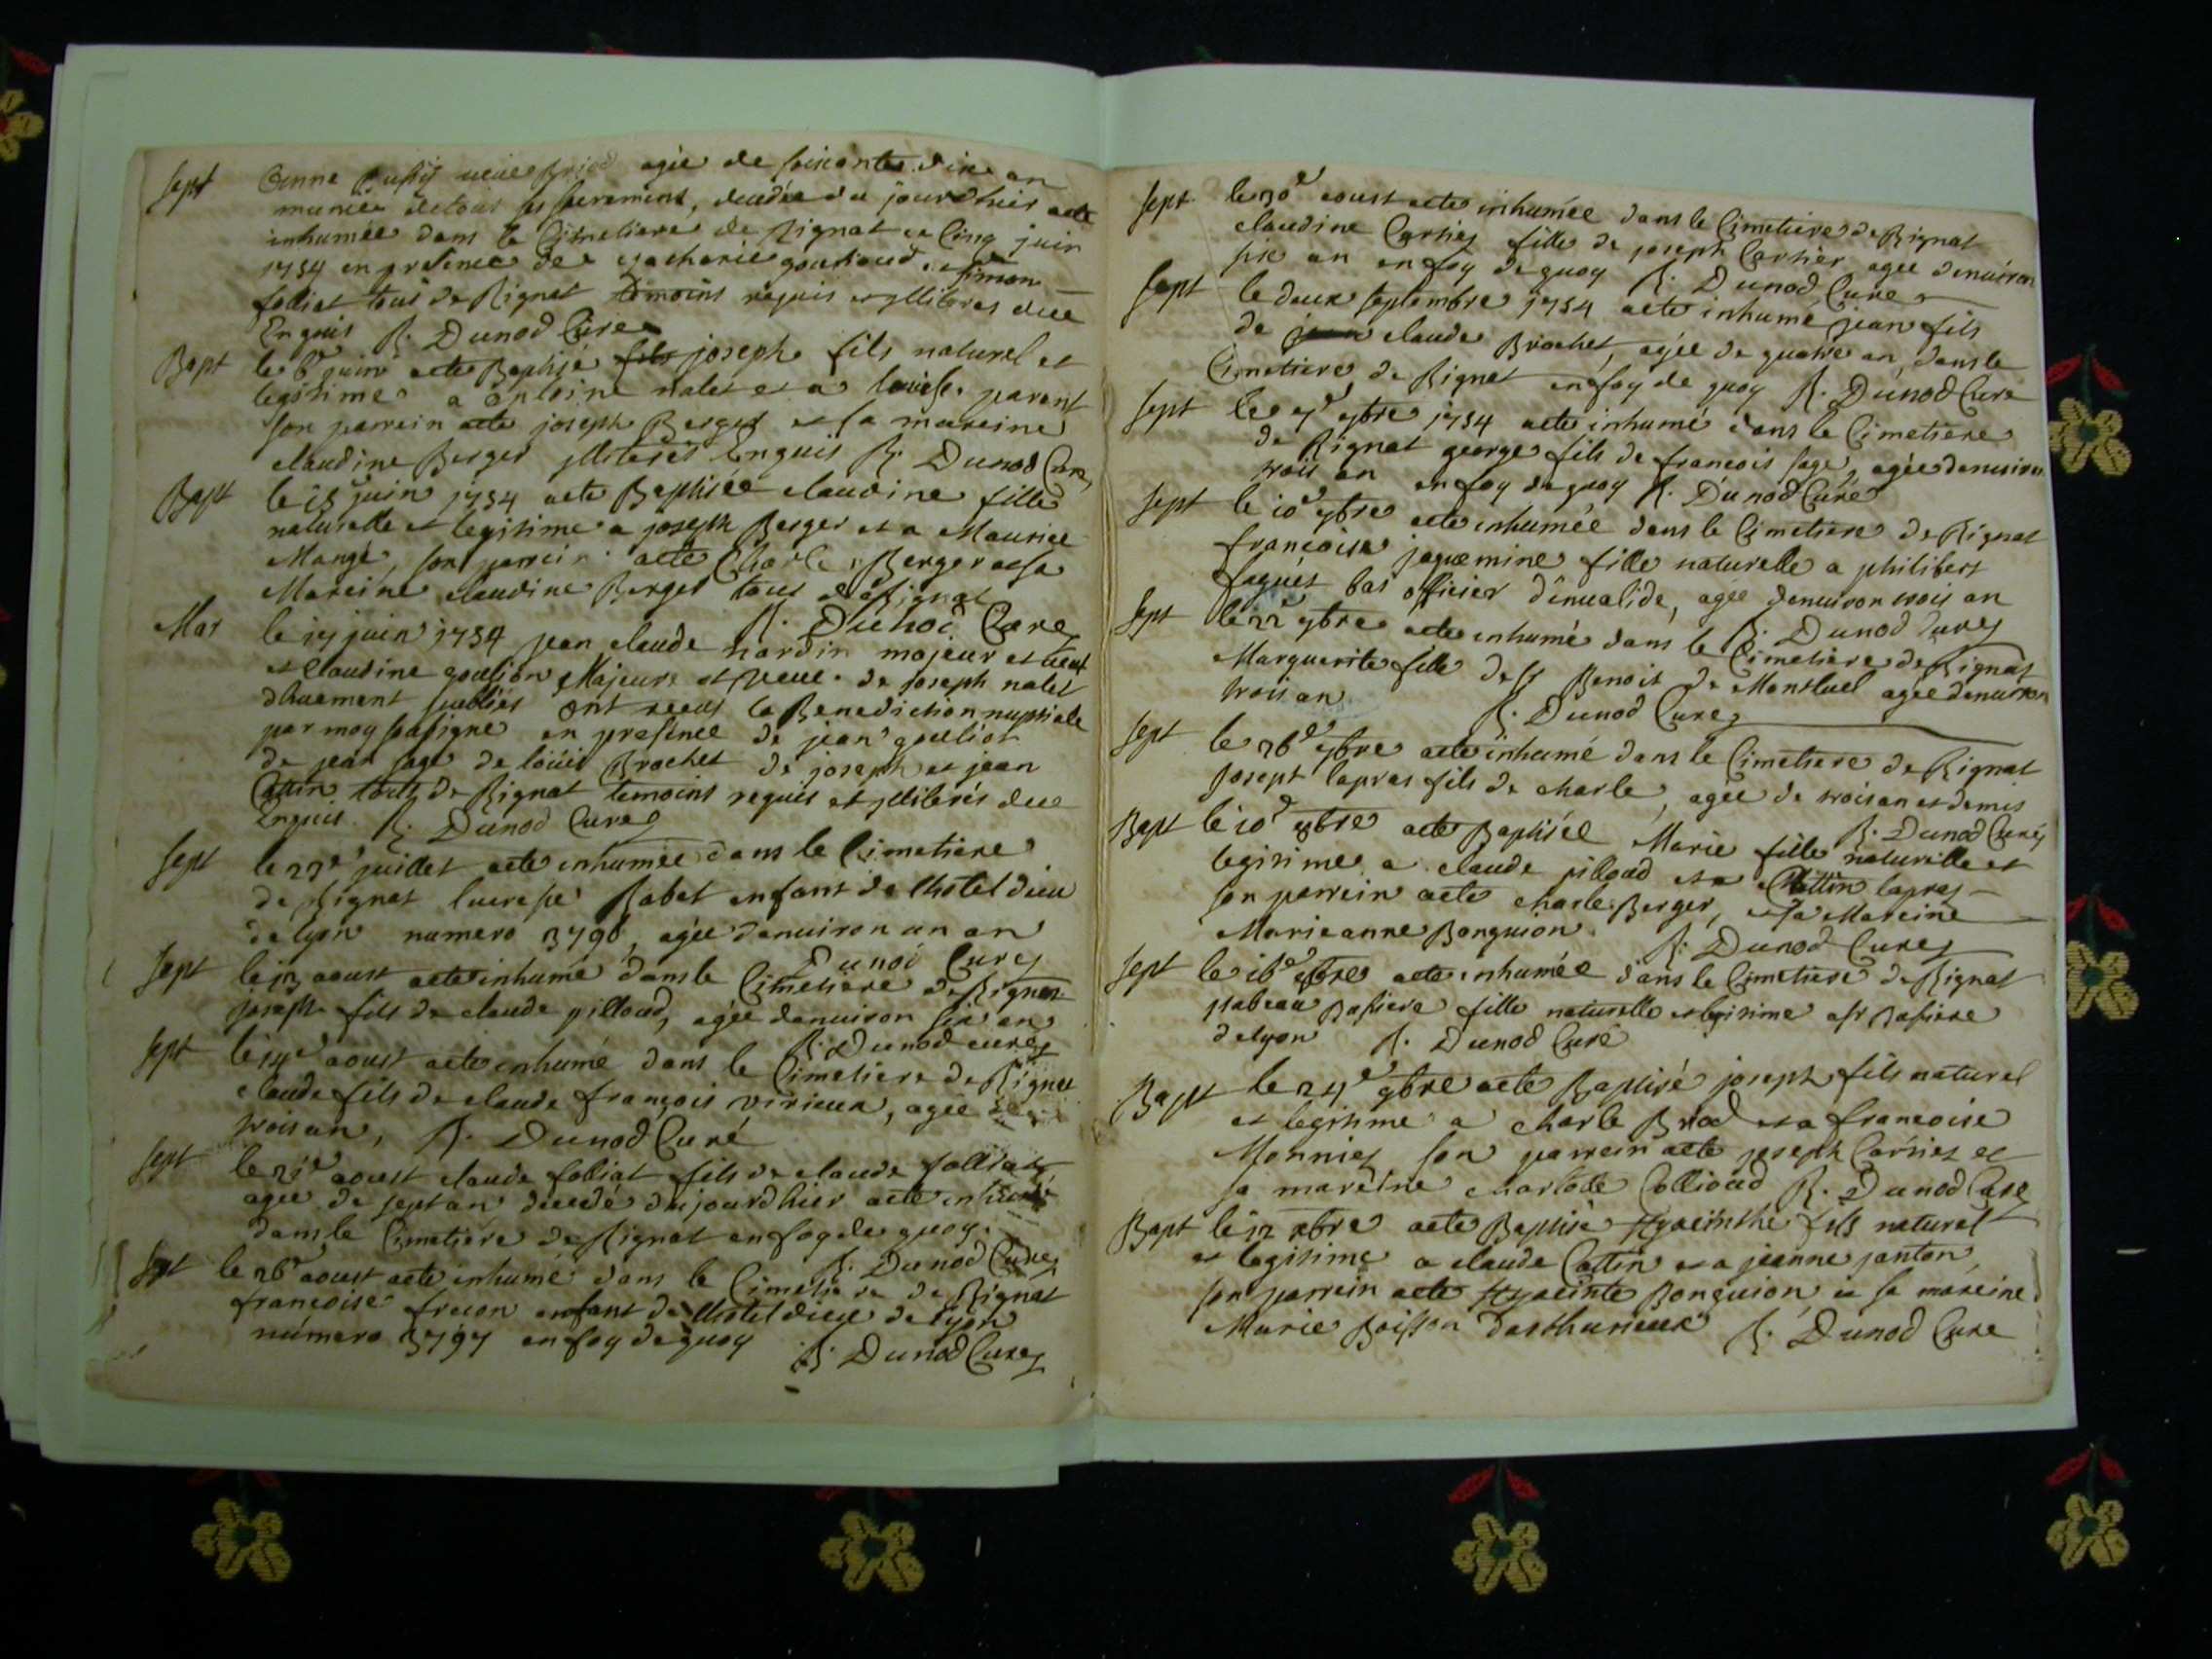 Sept Anne veuve Briod agée de soixante dix an
munie detous ses sacrement, decedée du jourdhier aeté
inhumée dans le Cimetiere de Rignat ce Cinq juin
1754 en presence de Zacharie goulioud, et simon
folliat tous de Rignat temoins requis et yllitères due
Enquis R. Dunod Cure
Bapt le 6e juin aeté Baptisé joseph fils naturel et
legitime a antoine nalet et a louise parant
son parrein aeté joseph Berger et sa mareine
claudine Berger yllitérés Enquis R. Dunod Cure
Bapt le 15 juin 1754 aeté Baptisée claudine fille
naturelle et legitime a joseph Berger et a Maurice
Mangé, son parrein aeté Charle Berger et sa
Mareine claudine Berger tous de Rignat
R. Dunod Cure
Mar le 17 juin 1754 jean claude nardin majeur et veuf
et claudine goulion Majeure et veuve de joseph nalet
dhuement publiés ont receus la Benediction nuptiale
par moy sousigné en presence de jean gouliot
de jean sage de loüis Brochet de joseph et jean
Cattin touts de Rignat temoins requis et yllitérés due
Enquis. R. Dunod Cure
Sept le 27e juillet aeté inhumée dans le Cimetiere
de Rignat lucresse Rabat enfant de lhotel dieu
de lyon numero 3796, agée denuiron un an
Dunod Cure
Sept le 12 aoust aeté inhumé dans le Cimetiere de Rignat
joseph fils de claude pilloud, agée denuiron six an
R. Dunod cure
Sept le 14e aoust aeté inhumé dans le Cimetiere de Rignat
claude fils de claude françois virieux, agée de
trois an, R. Dunod Curé
Sept le 21e aoust claude folliat fils de claude folliat
agée de sept an decedé du jourdhier aeté inhumé
dans le Cimetiere de Rignat en foy de quoy.
R. Dunod Cure
Sept le 26e aoust aeté inhumé dans le Cimetiere de Rignat
françoise frecon enfant de lhotel dieu de lyon
número 3797 en foy de quoy R. Dunod Cure
Sept le 30e aoust aeté inhumée dans le Cimetiere de Rignat
claudine Cartier fille de joseph Cartier agée denuiron
six an en foy de quoy R. Dunod Cure
Sept le deux septembre 1754 aeté inhumé jean fils
de claude Brochet, agée de quatre an, dans le
Cimetiere de Rignat en foy de quoy R. Dunod Cure
Sept le 7e 7bre 1754 aeté inhumé dans le Cimetiere
de Rignat george fils de francois sage, agée denuiron
trois an en foy de quoy R. Dunod Curé
Sept le 10e 7bre aeté inhumée dans le Cimetiere de Rignat
françoise jaquemine fille naturelle a philibert
faguet bas officier dinualide, agée denuiron trois an
R. Dunod Cure
Sept le 22e 7bre aeté inhumé dans le Cimetiere de Rignat
Marguerite fille de Sr Benoit de Montluel agée denuiron
trois an R. Dunod Cure
Sept le 26e 7bre aeté inhumé dans le Cimetiere de Rignat
josept lapras fils de charle, agée de trois an et demis
R. Dunod Curé
Bapt le 10e 8bre aeté Baptisée Marie fille naturelle et
legitime a claude pilloud et a Cattin lapras
son parrein aeté charle Berger, et sa Mareine
Marieanne Bonguion. R. Dunod Cure
Sept le 16e 8bre aeté inhumée dans le Cimetiere de Rignat
ysabeau Bassiere fille naturelle et legitime a Sr Bassiere
de lyon R. Dunod Curé
Bapt le 24e 9bre aeté Baptisé joseph fils naturel
et legitime a charle Briod et a françoise
Monnier son parrein aeté joseph Cartier et
sa mareine charlotte Collioud R. Dunod Cure
Bapt le 12 xbre aeté Baptisé Hyacinthe fils naturel
et legitime a claude Cattin et a jeanne janton,
son parrein aeté Hyacinte Bonguion et sa mareine
Marie Boisson dArthurieux R. Dunod Cure